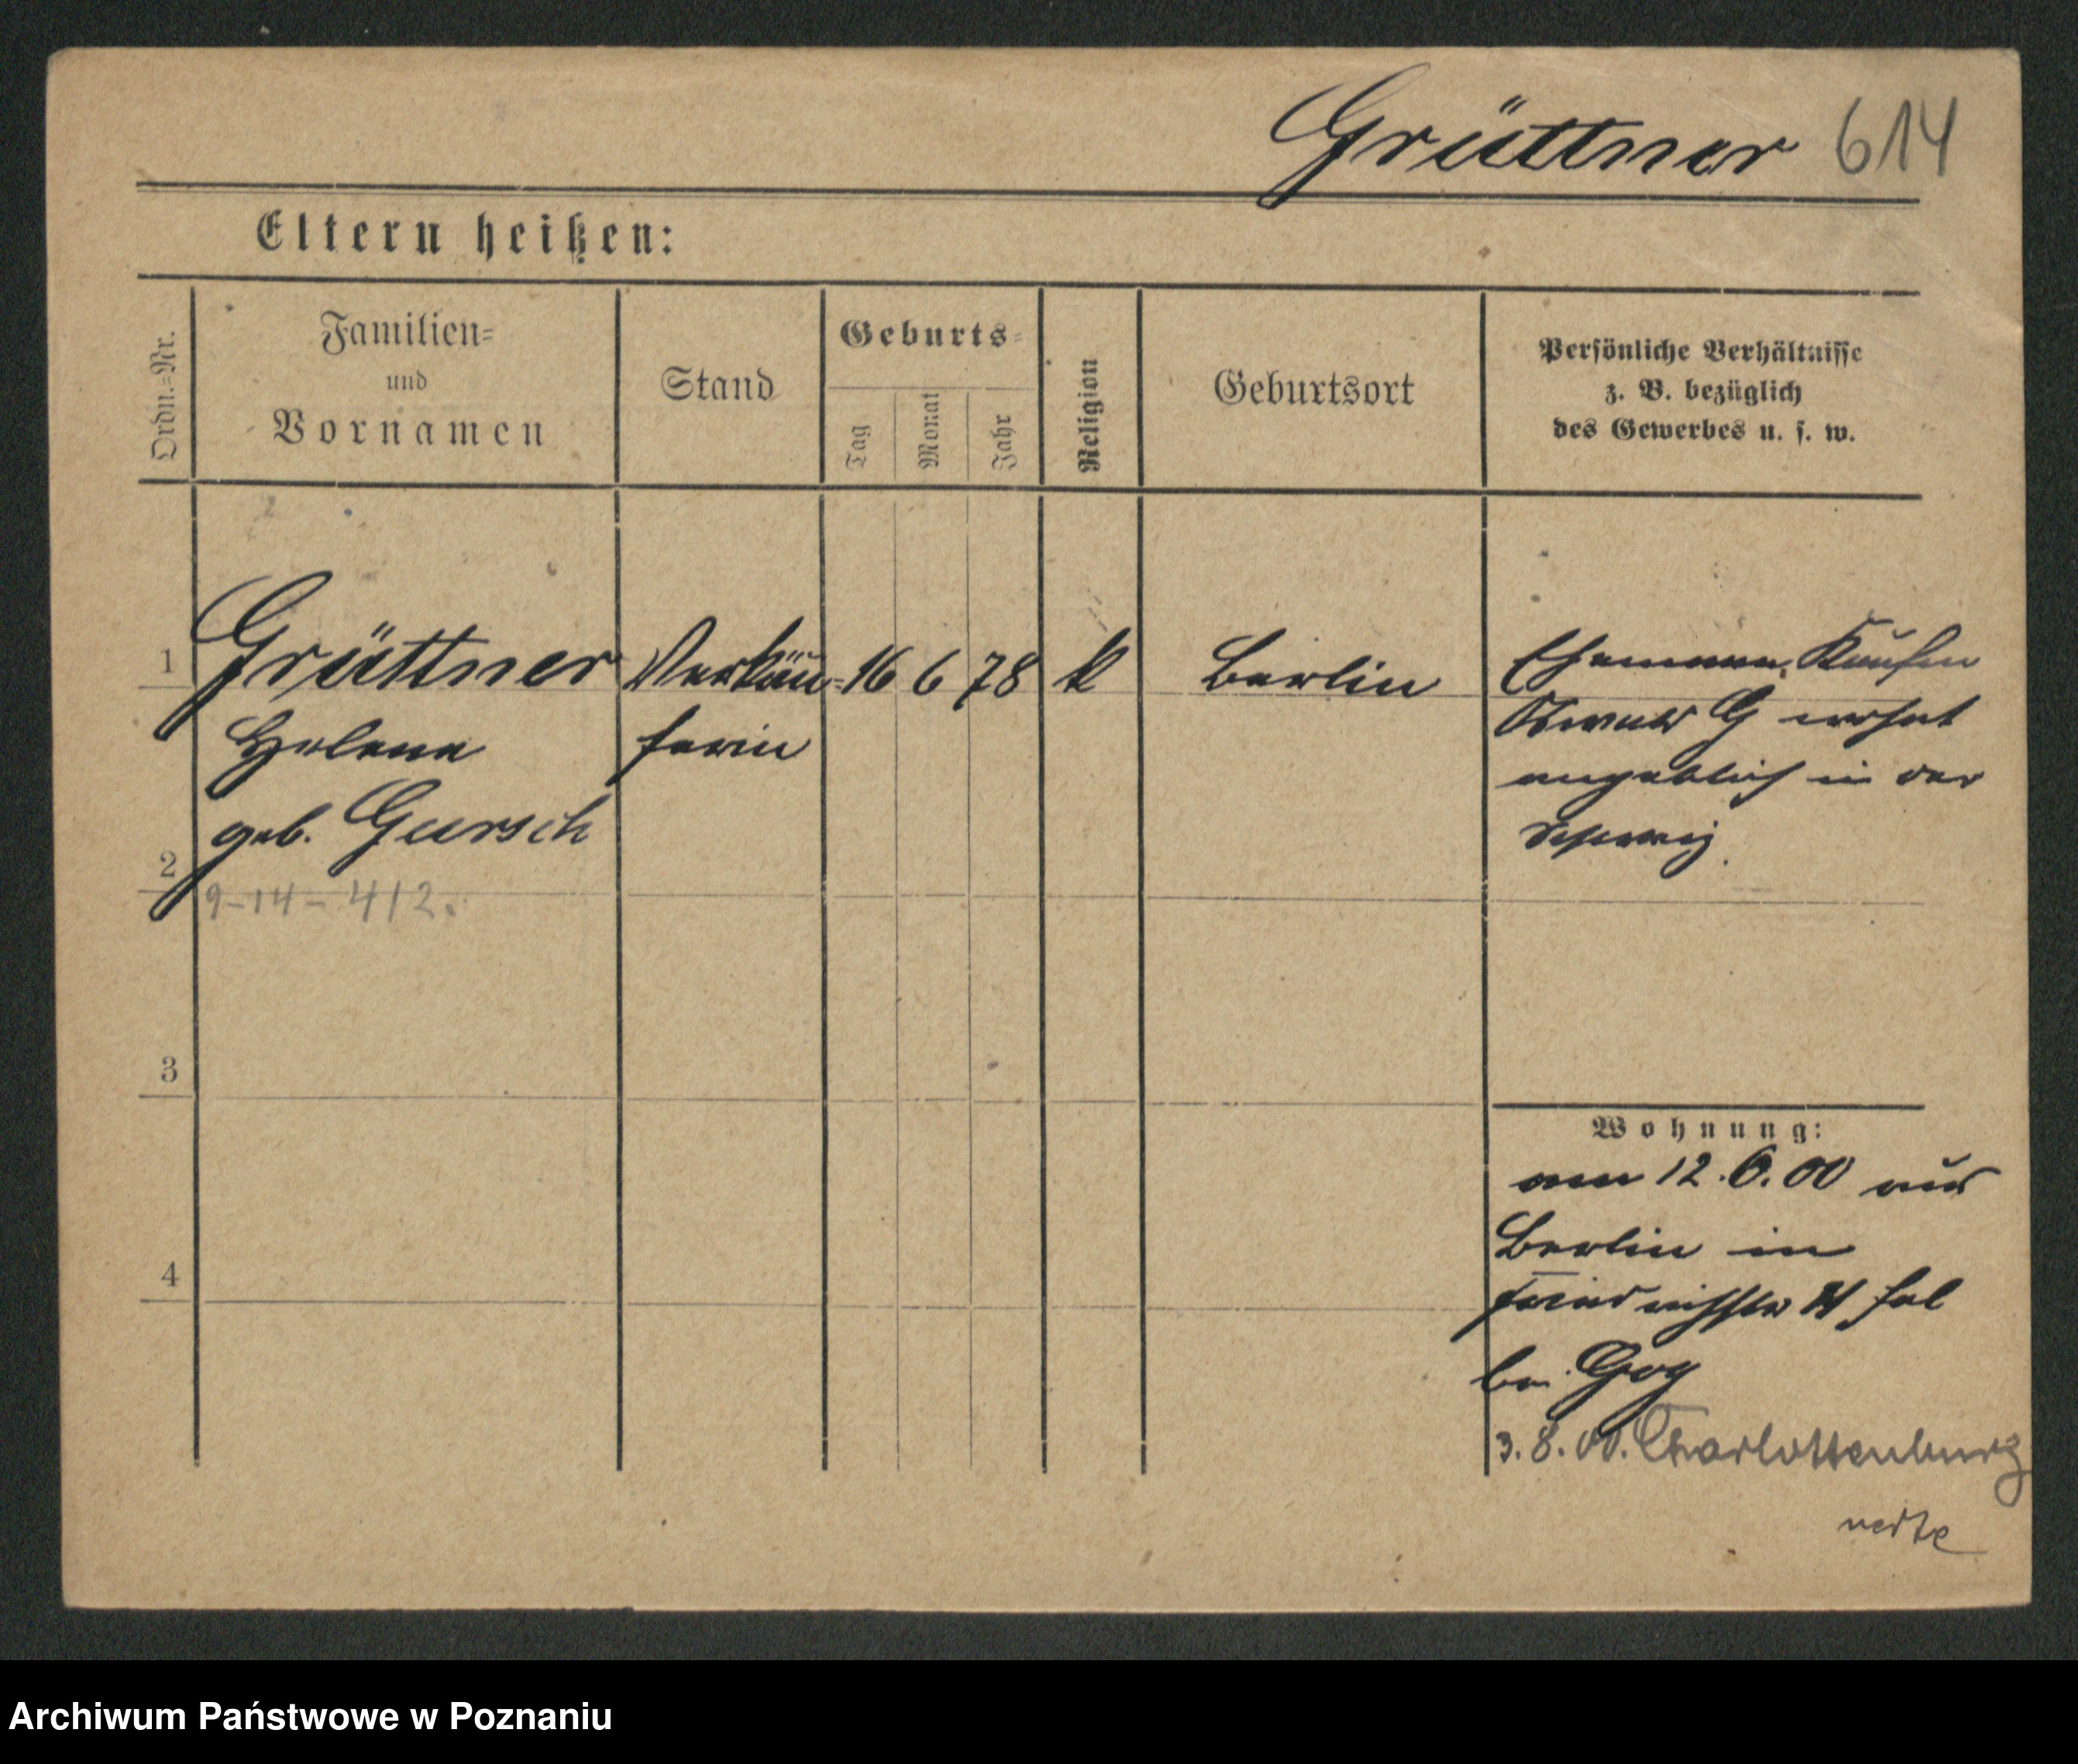 Grüttner 614
Eltern heißen:
Ordn.=Nr.
Familien=
und
Vornamen
Stand
Geburts=
Tag
Monat
Jahr
Religion
Geburtsort
Persönliche Verhältnisse
z. B. bezüglich
des Gewerbes u. s. w.
1
Grüttner
Helene
geb. Gursch
Verkäu-
ferin
16 6 78
k
Berlin
Ehemann, Kaufm
Oswald G wohnt
angeblich in der
Schweiz.
2
9-14-412.
3
4
Wohnung:
am 12.6.00 aus
Berlin in
bei Gog
3.8.00. Charlottenburg